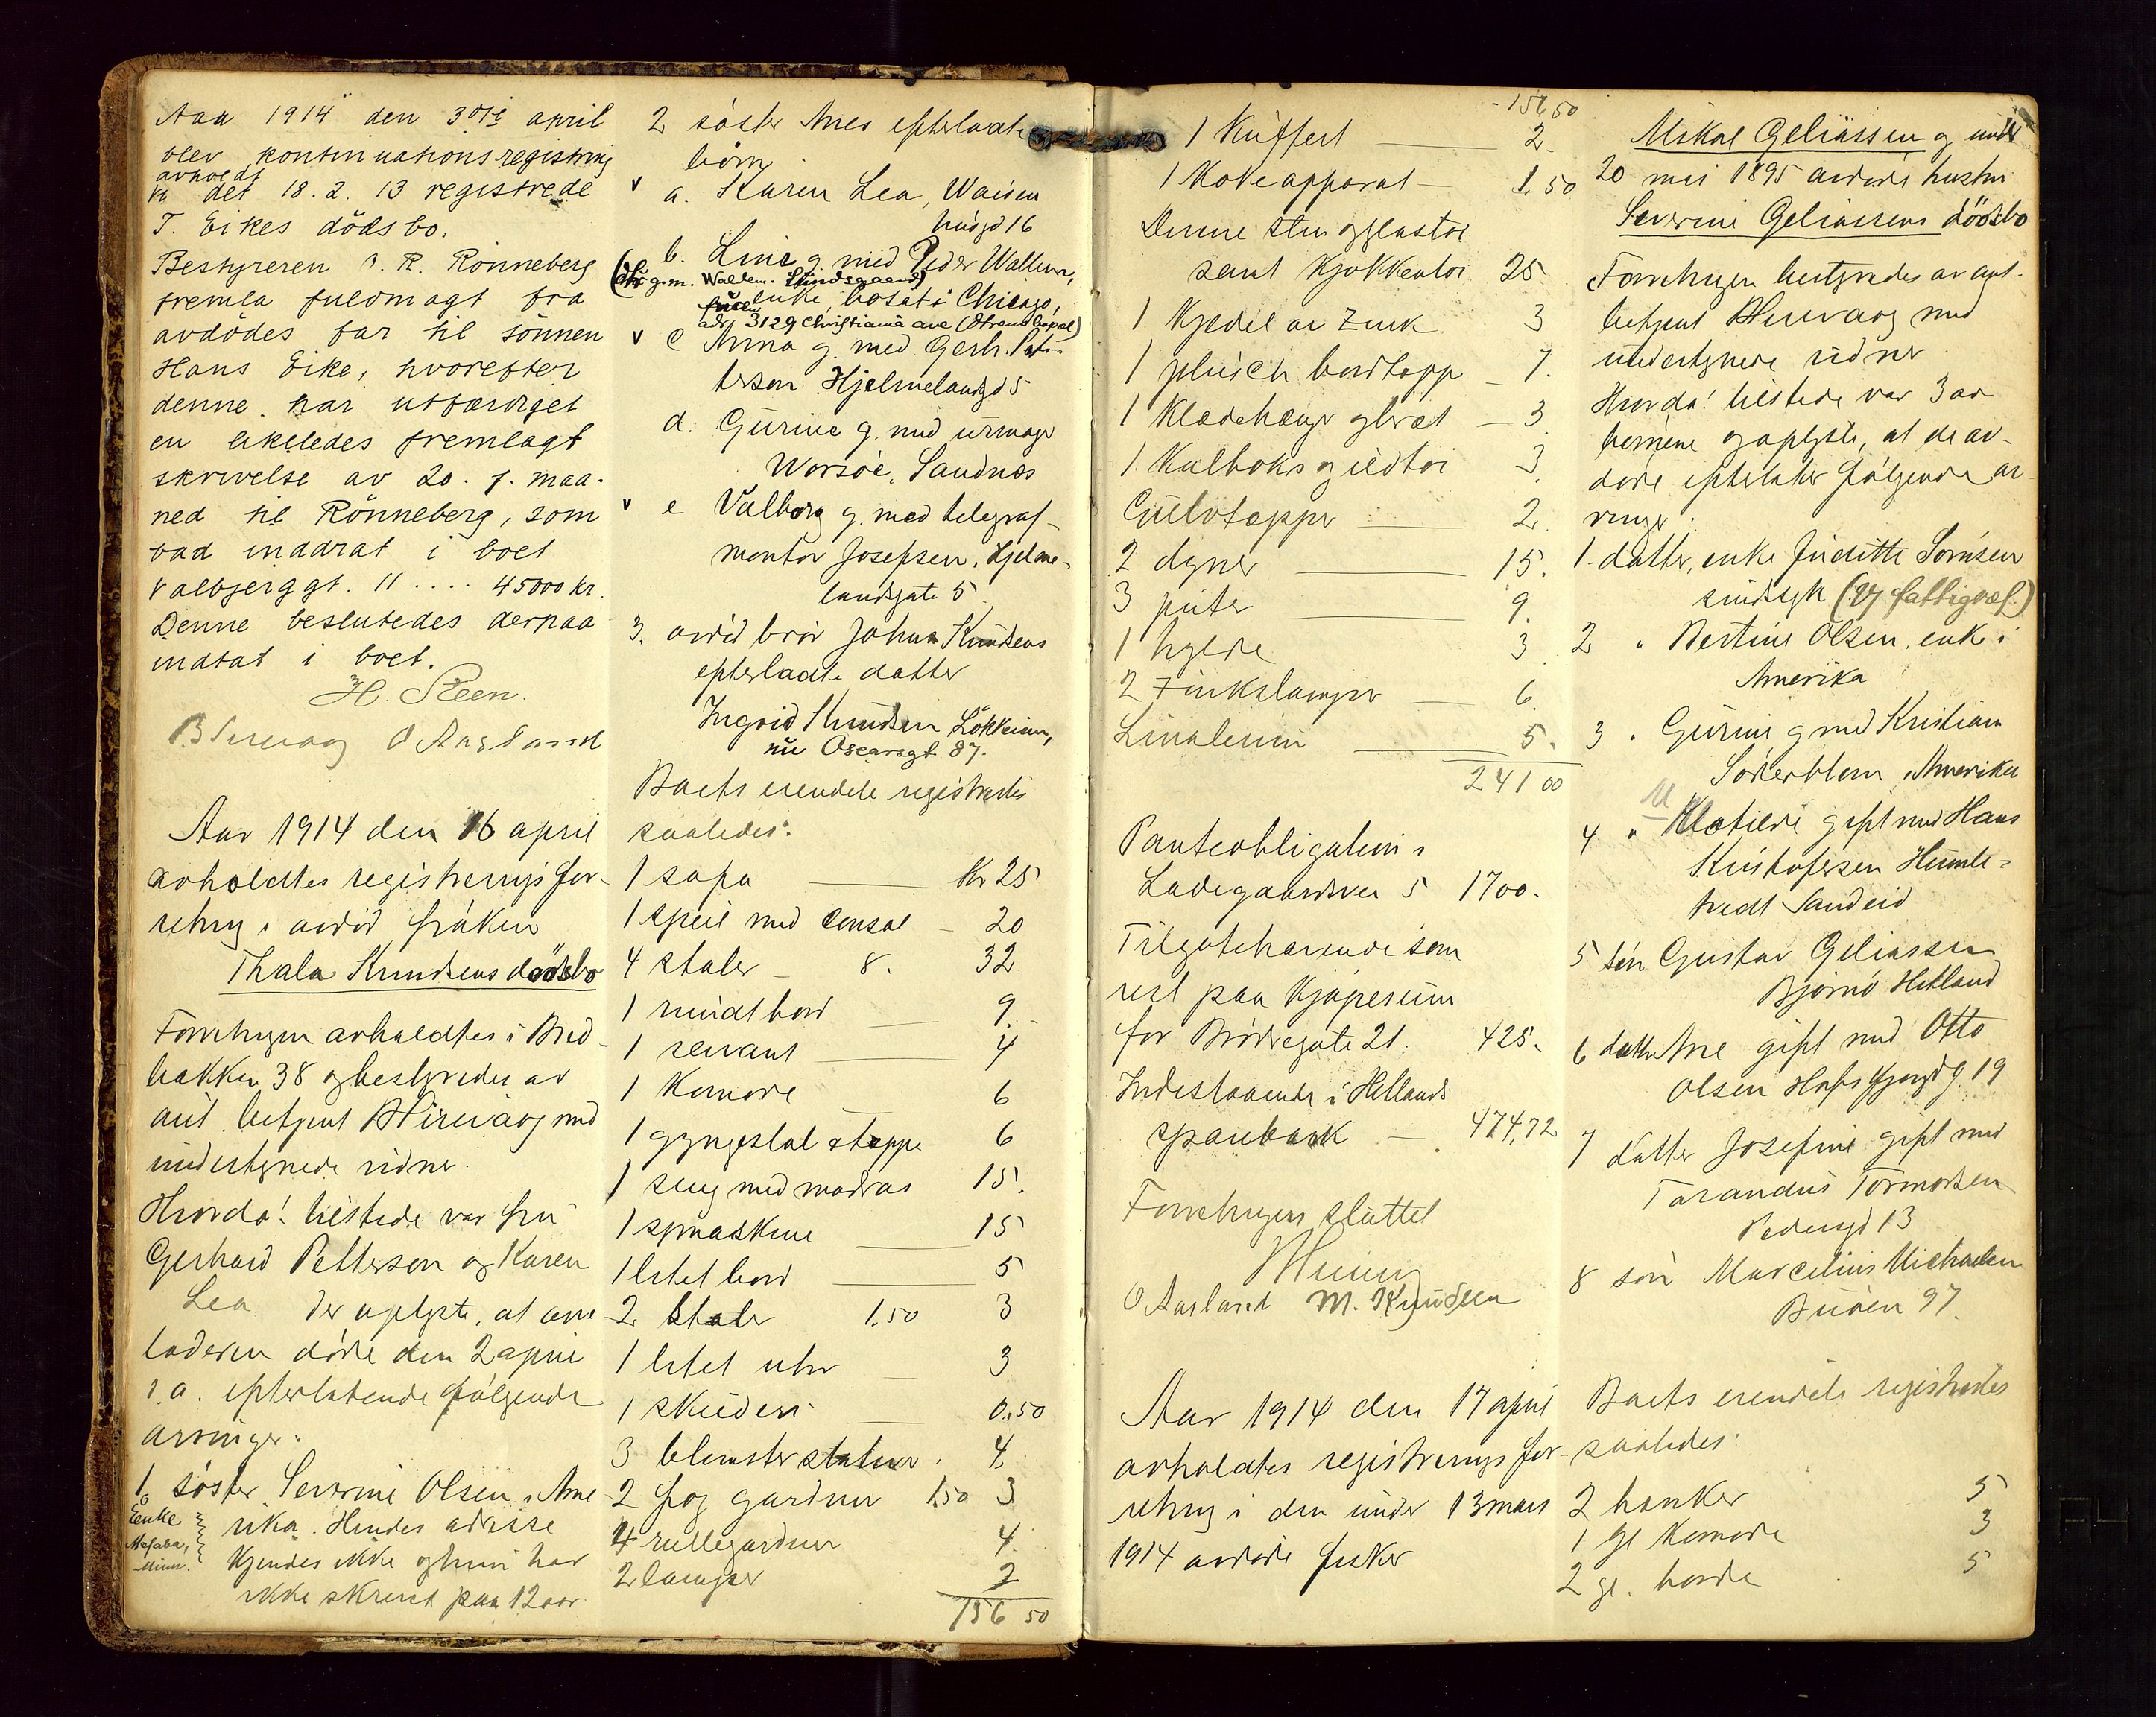 Aar 1914 den 30te april
blev kontinuationsregistring
avholdt
i det 18.2.13 registrerede
T. Eikes dödsbo.
Bestyreren O. R. Rönneberg
fremla fuldmagt fra
avdödes far til sönnen
Hans Eike, hvorefter
denne har utfærdiget
en likeledes fremlagt
skrivelse av 20. f. maa-
ned til Rönneberg, som
bad inddrat i boet
Valbjerggt. 11 .... 45000 kr.
Denne beslutedes derpaa
indtat i boet.
H. Steen.
O Aasland
Aar 1914 den 16 april
avholdtes registreringsfor-
retning i avdöd fröken
Thala Knudsens dödsbo
Forretningen avholdtes i Bred-
bakken 38 og bestyredes av
aut. betjent med
undertegnede vidner.
Hvorda! tilstede var fru
Gerhard Petterson og Karen
Lea der oplyste, at om
laderen döde den 2 april
d.a. efterlatende følgende
arvinger:
1. søster Severine Olsen i Ame-
rika. Hendes adresse
kjendes ikke og hun har
ikke skrevet paa 12 aar
Enke
2 søster Anes efterladte
börn
v a. Karen Lea, Waisen
husgd 16
b. Line g. med Peder Wallum,
g. m. Waldem. Lundsgaard)
enke, bosat i Chicago,
adr 3129 Christiana ave
v c Anna g. med Gerh. Pet-
terson Hjelmelandsgd 5
d. Gurine g. med urmager
Worsöe, Sandnæs
v e Valborg g. med telegraf-
montør Josefsen, Hjelme-
landsgate 5
3. avdöd bror Johan Knudsens
efterladte datter
Ingrid Knudsen Lökkeien,
nu Oscarsgt 87.
Boets eiendele registreredes
saaledes:
1 sofa Kr 25
1 speil med konsol - 20
4 stoler - 8. 32
1 rundt bord 9.
1 servant 4
1 Komode 6
1 gyngestol teppe 6
1 seng med madras 15.
1 symaskine 15
1 litet bord 5
2 stoler 1.50 3
1 litet uhr 3
1 skilderi 0.50
3 blomsterstativer . 4.
2 fag gardiner 1.50 3
4 rullegardiner 4.
2 lamper 2
156 50
156,50
1 Kuffert 2.
1 Kokeapparat - 1.50
Denne sten og glastöi
samt kjøkkentöi 25
1 Kjedel av Zink 3
1 plüsch bordtæppe - 7.
1 Klædehenger og bræt - 3.
1 Kulboks og ildtöi 3.
Gulvtæpper 2.
2 dyner 15.
3 puter 9.
1 hylde 3
2 Zinkslamper 6.
Linoleum 5.
241 00
Panteobligation i
Ladegaardsvei 5 1700.
Tilgodehavende som
rest paa kjøpesum
for Brødregate 21. 425.
Indestaaende i Hetlands
sparebank - 474,72
Forretningen sluttet
O Aasland M. Knudsen
Aar 1914 den 17 april
avholdtes registreringsfor-
retning i den under 13 mars
1914 avdøde fisker
Mikal Geliassen og under
20 mai 1895 avdøde hustru
Severine Geliassens dödsbo
Forretningen bestyredes av aut.
betjent med
undertegnede vidner
Hvorda! tilstede var 3 av
børnene og oplyste, at de av-
døde efterlater følgende ar
vinger:
1. datter, enke Juditte Sørnsen
sindssyk (Ved fattigvæs.)
2 " Bertine Olsen, enke i
Amerika
3 " Gurine g. med Kristian
Söderblom, Amerika
4 " Klotilde gift med Hans
Kristofersen Humle-
tvedt Sandeid
5 søn Gustav Geliassen
Bjornö Hetland
6 datter Ane gift med Otto
Olsen Hafrsfjordg. 19
7 datter Josefine gift med
Tarandus Tormodsen
Pedersgd 13
8 søn Marcelius Michaelsen
Buøen 97.
Boets eiendele registreredes
saaledes:
2 bænker 5
1 gl Komode 3
2 gl. borde 5